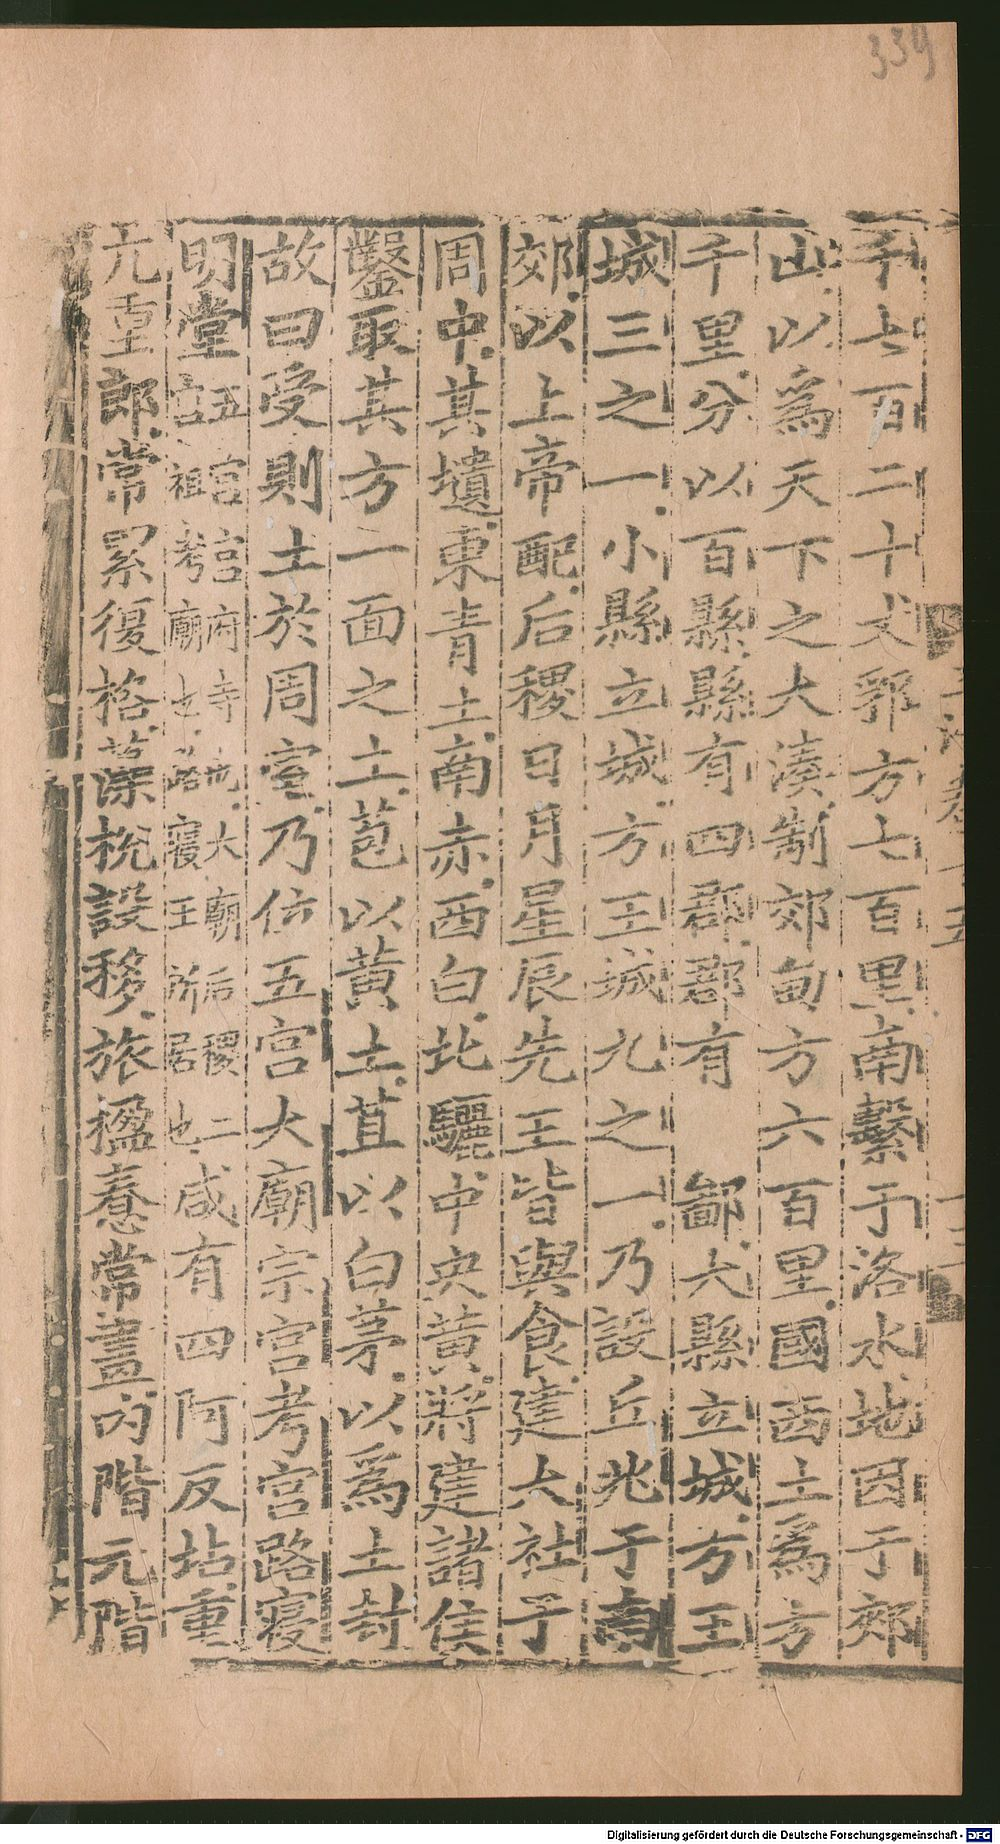 339
千七百二十丈郛方七百里南繫于洛水地因于郊
山以爲天下之大湊制郊甸方六百里國西土爲方
千里分以百縣縣有四郡郡有 鄙大縣立城方王
城三之一小縣立城方王城九之一乃設丘兆于南
郊以上帝配后稷日月星辰先王皆與食建大社于
周中其壝東青土南赤西白北驪中央黃將建諸侯
鑿取其方一面之土苞以黃土苴以白茅以爲土封
故曰受則土於周室乃位五宮大廟宗宮考宮路寢
明堂五宮宮府寺也大廟后稷二宮祖考廟也路寢王所居也咸有四阿反坫重
亢重郎常累復格藻梲設移旅楹惷常畫内階元階
Digitalisierung gefördert durch die Deutsche Forschungsgemeinschaft - DFG